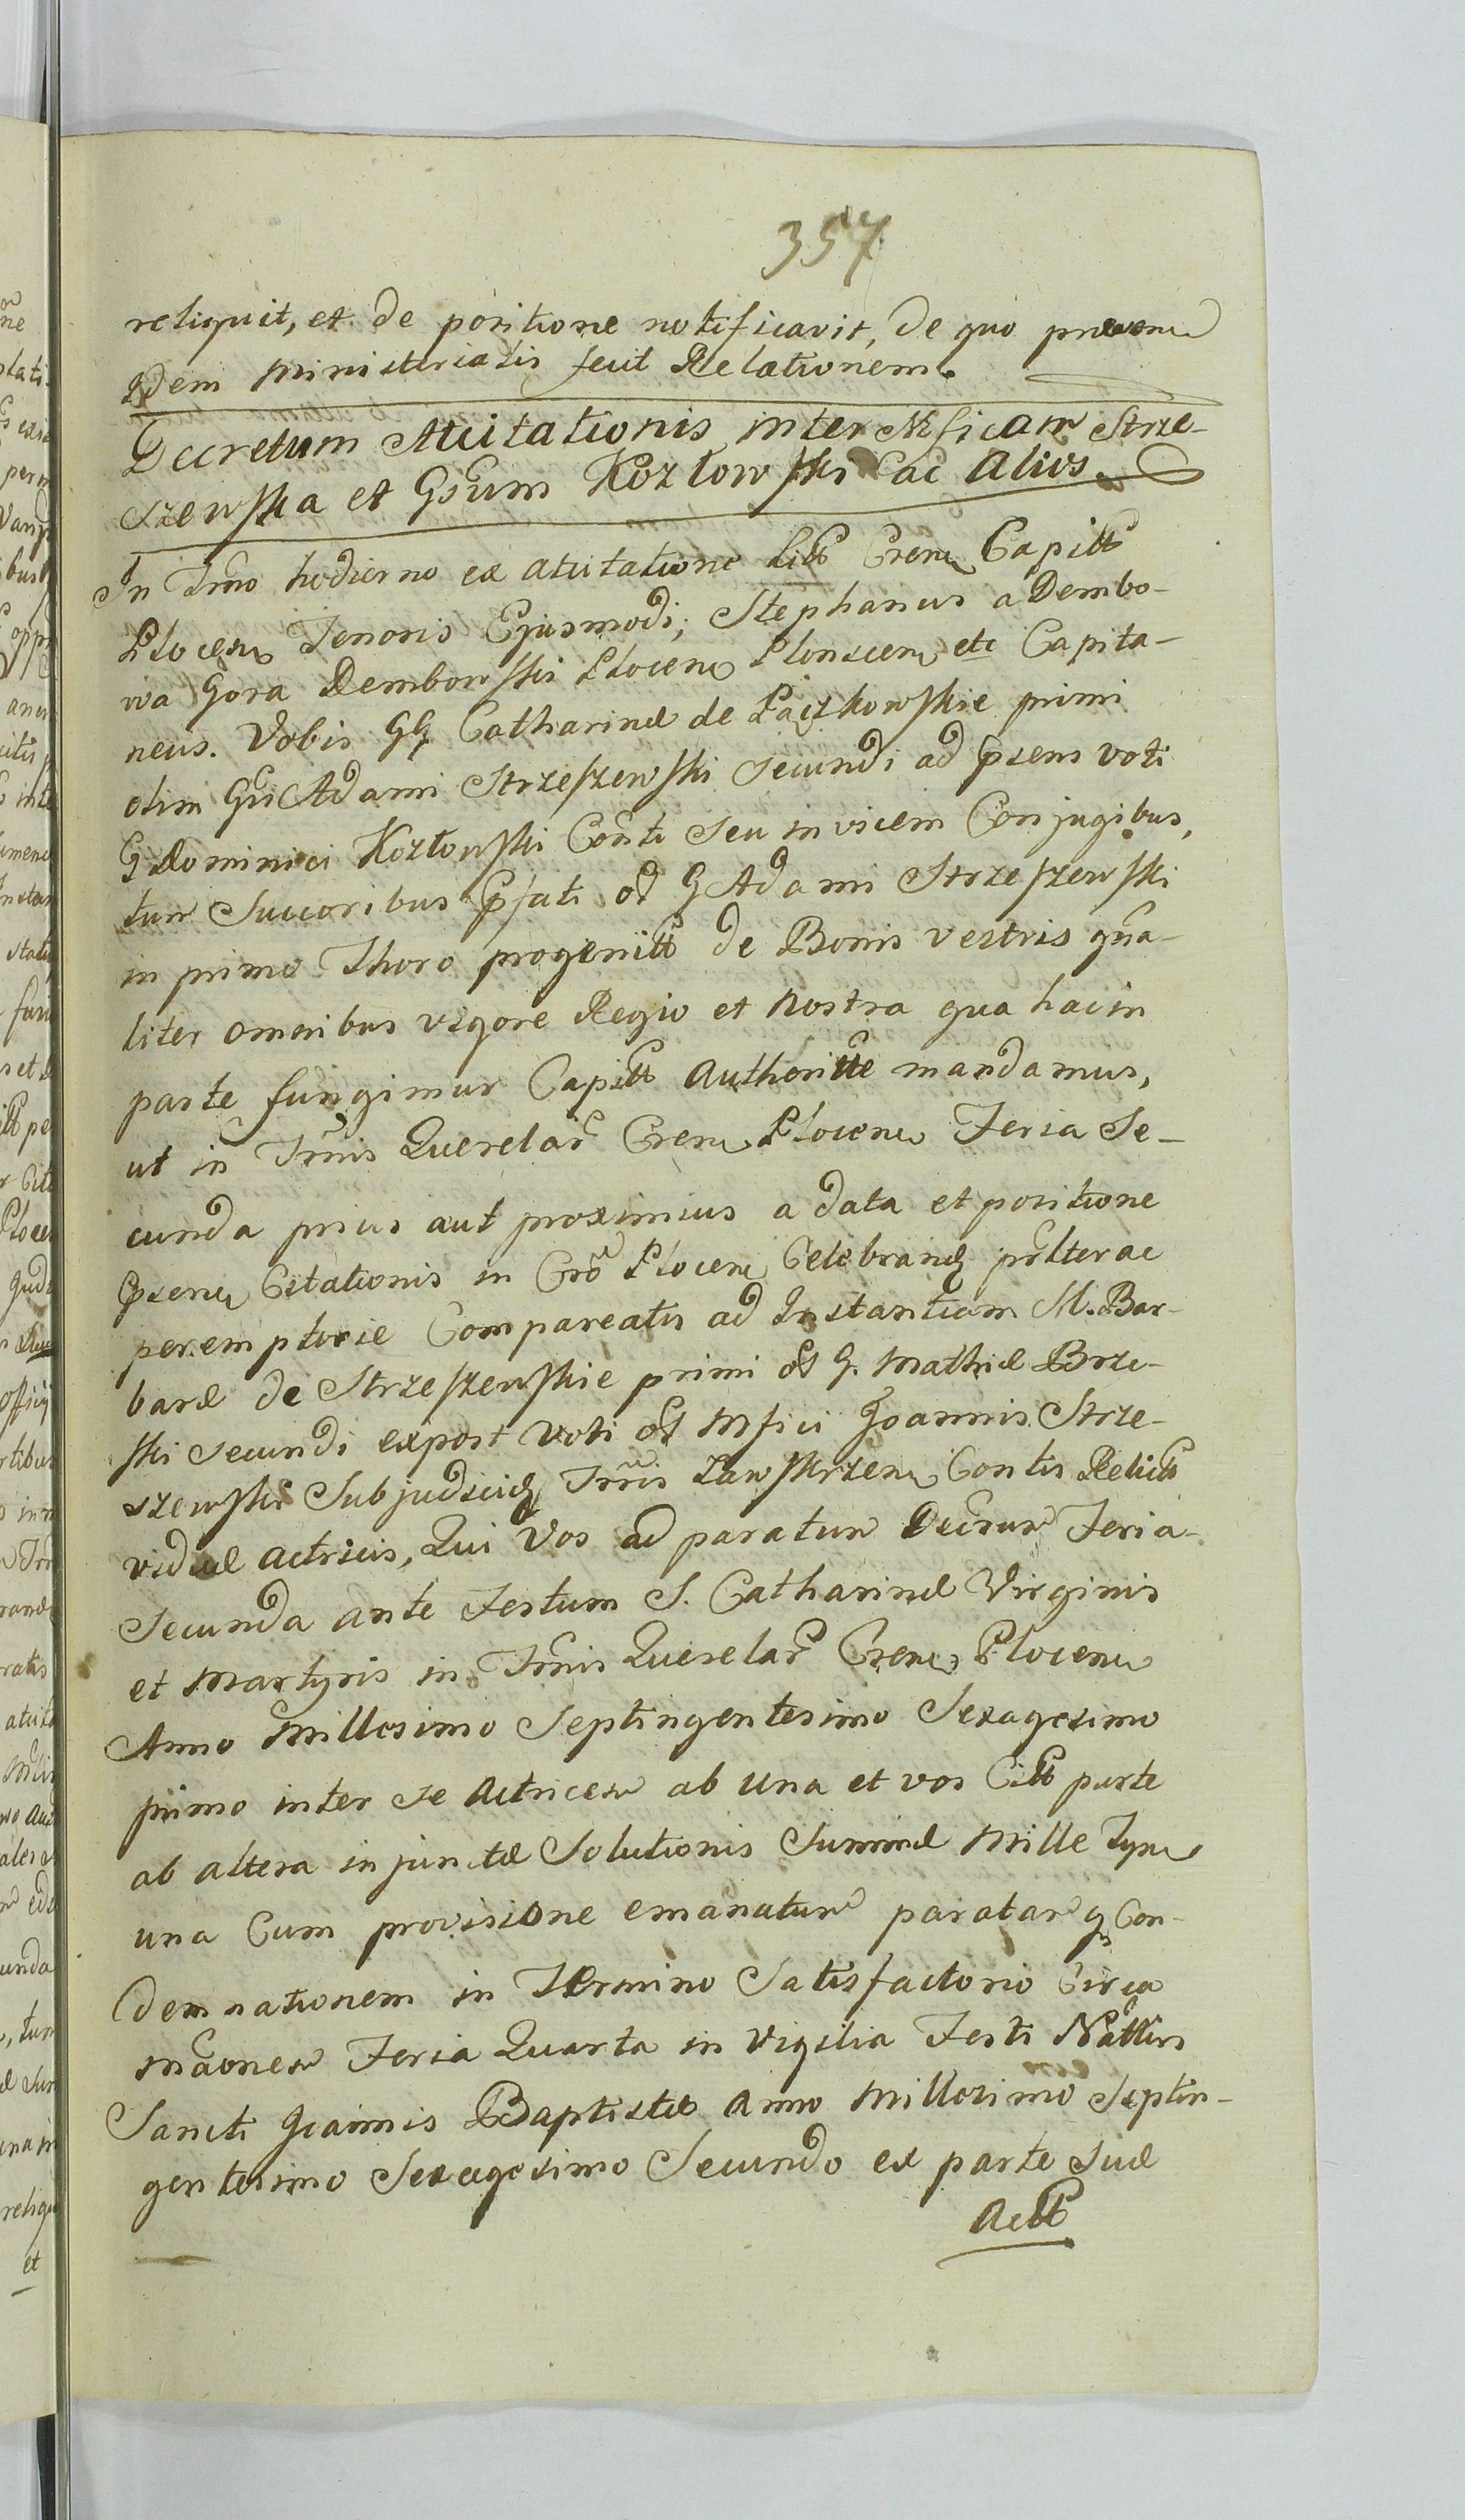 357
reliquit, et de positione notificavit, de quo praesens
Idem Ministerialis fecit Relationem.
Decretum Atcitationis inter Mficam Strze-
szewska et Gsum Kozłowski ac Alios.
In Trno hodierno ex atcitatione litt Cren Capitt
Plocen Tenoris Ejusmodi; Stephanus a Dembo-
wa Gora Dembowski Plocen Plonscen etc Capita-
neus. Vobis GG Catharinæ de Paczkowskie primi
olim Gsi Adami Strzeszewski secundi ad psens voti
G Dominici Kozłowski Consti seu invicem Conjugibus,
tum Succoribus Pfati od G Adami Strzeszewski
in primo Thoro progenitt de Bonis vestris gna-
liter omnibus vigore Regio et Nostra qua hac in
parte fungimur Capitt Authoritte mandamus,
ut in Trnis Querelar Cren Plocen Feria Se-
cunda prius aut proximius a data et positione
Psen Citationis in Cro Plocen Celebrand pnlter ac
peremptorie Compareatis ad Instantiam M. Bar-
baræ de Strzeszewskie primi od G. Mathiæ Brze-
ski secundi expost Voti od Mfici Joannis Strze-
szewski Subjudicis Trris Zawskrzen Contis Relictt
viduæ Actricis, Qui Vos ad paratum Decrum Feria
Secunda ante Festum S. Catharinæ Virginis
et Martyris in Trnis Querelar Cren Plocen
Anno Millesimo Septingentesimo Sexagesimo
primo inter se Actricem ab Una et vos Citt parte
ab altera injunctæ Solutionis Summæ Mille Tym
una Cum provisione emanatum paratam q Con-
demnationem in Termino Satisfactorio Circa
Maonem Feria Quarta in Vigilia Festi Nattis
Sancti Joannis Baptistæ Anno Millesimo Septin-
gentesimo Sexagesimo Secundo ex parte suæ
Actt